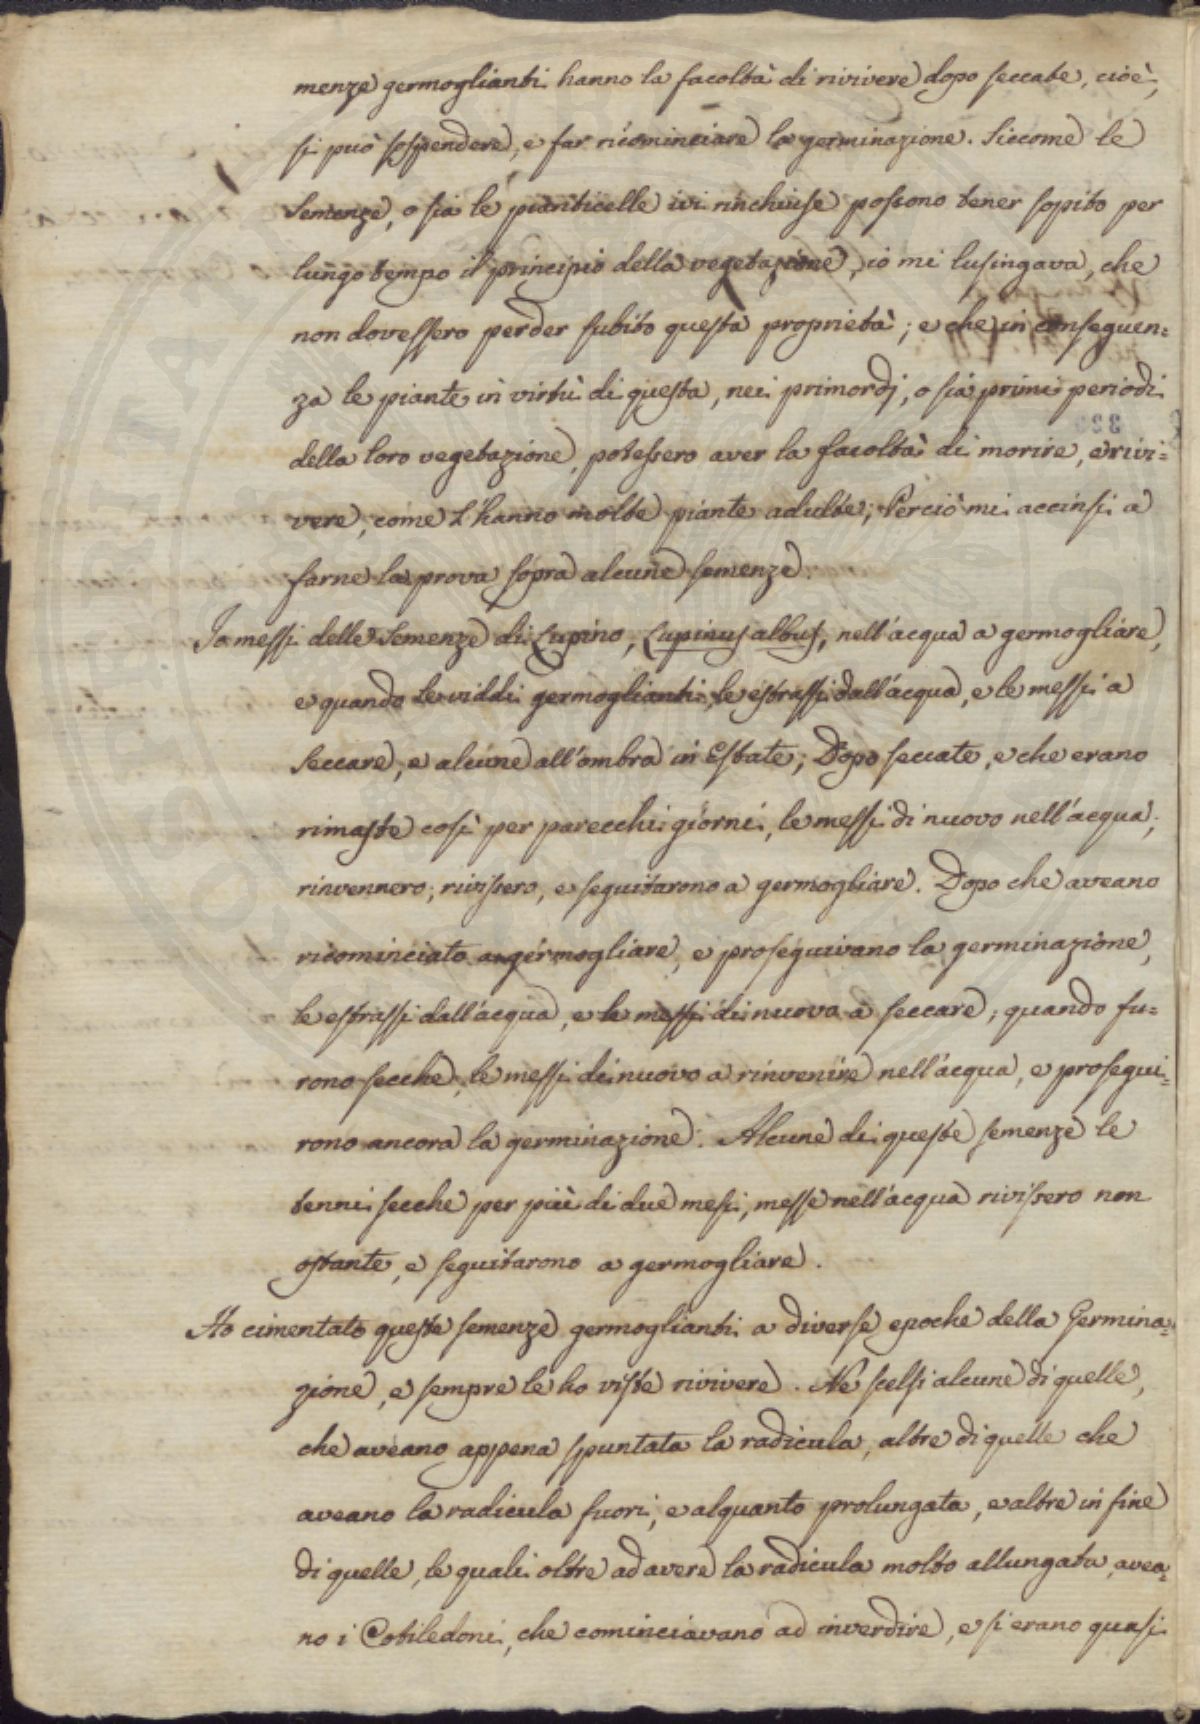 menze germoglianti hanno la facoltà di rivivere dopo seccate, cioè,
si può sospendere, e far ricominciare la germinazione. Siccome le
Semenze, o sia le pianticelle ivi rinchiuse possono tener sopito per
lungo tempo il principio della vegetazione, io mi lusingava, che
non dovessero perder subito questa proprietà; e che in conseguen=
za le piante in virtù di questa, nei primordj, o sia primi periodi
della loro vegetazione, potessero aver la facoltà di morire, e rivi=
vere, come l'hanno molte piante adulte; Perciò mi accinsi a
farne la prova sopra alcune semenze.
Io messi delle Semenze di Lupino, Lupinus albus, nell'acqua a germogliare,
e quando le viddi germoglianti, le estrassi dall'acqua, e le messi a
seccare, e alcune all'ombra in Estate; Dopo seccate, e che erano
rimaste così per parecchi giorni, le messi di nuovo nell'acqua;
rinvennero; rivissero, e seguitarono a germogliare. Dopo che aveano
ricominciato a germogliare, e proseguivano la germinazione,
le estrassi dall'acqua, e le messi di nuovo a seccare; quando fu=
rono secche, le messi di nuovo a rinvenire nell'acqua, e prosegui=
rono ancora la germinazione. Alcune di queste semenze le
tenni secche per più di due mesi, messe nell'acqua rivissero non
ostante, e seguitarono a germogliare.
Ho cimentato queste semenze germoglianti a diverse epoche della Germina=
zione, e sempre le ho viste rivivere. Ne scelsi alcune di quelle,
che aveano appena spuntata la radicula, altre di quelle che
aveano la radicula fuori, e alquanto prolungata, e altre in fine
di quelle, le quali oltre ad avere la radicula molto allungata, avea=
no i Cotiledoni, che cominciavano ad inverdire, e si erano quasi